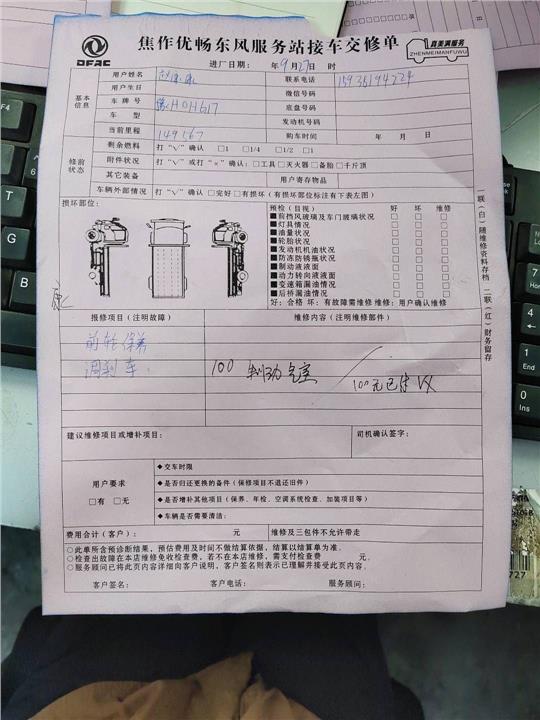 DFAC
焦作优畅东风服务站接车交修单
真美满服务
ZHENMEIMANFUWU
进厂日期: 年9月27日 时
基本信息
用户姓名 联系电话
用户生日 微信号码
车牌号 豫H0H617 底盘号码
车型 发动机号码
当前里程 149567 购车时间 年 月 日
修前状态
剩余燃料 打“√”确认 □1 □1/4 □1/2 □1
附件状况 打“√”或打“×”确认: □工具 □灭火器 □备胎 □千斤顶
其它装备 用户寄存物品
车辆外部情况 打“√”确认 □完好 □有损坏(有损坏部位标注有下表左图)
损坏部位:
预检(目视) 好 坏 维修
■前挡风玻璃及车门玻璃状况 □ □ ○
■灯具情况 □ □ ○
■油量状况 □ □ ○
■轮胎状况 □ □ ○
■发动机机油状况 □ □ ○
■防冻防锈瓶状况 □ □ ○
■制动液液面 □ □ ○
■动力转向液液面 □ □ ○
■变速箱漏油情况 □ □ ○
■后桥漏油情况 □ □ ○
好: 合格 坏: 有故障需维修 维修: 用户确认维修
一联(白)随维修资料存档 二联(红)财务留存
报修项目(注明故障) 维修内容(注明维修部件)
前轮保养
调刹车
100 制动气室
100元已付
建议维修项目或增补项目: 司机确认签字:
用户要求
□有 □无
◆交车时限
◆是否归还更换的备件(保修项目不退还旧件)
◆是否增补其他项目(保养、年检、空调系统检查、加装项目等)
◆车辆是否需要清洁:
费用合计(客户): 元 维修及三包件不允许带走
○此单所含预诊断结果,预估费用及时间不做结算依据,结算以结算单为准。
○检查出故障在本店维修免收检查费,若不在本店维修,需支付检查费 元。
○服务顾问已将此页内容详细向客户说明,客户签名则表示已理解并接受此页内容。
客户签名: 客户电话: 服务顾问:
F4
F5
7
4
1
End
0
Ins
727